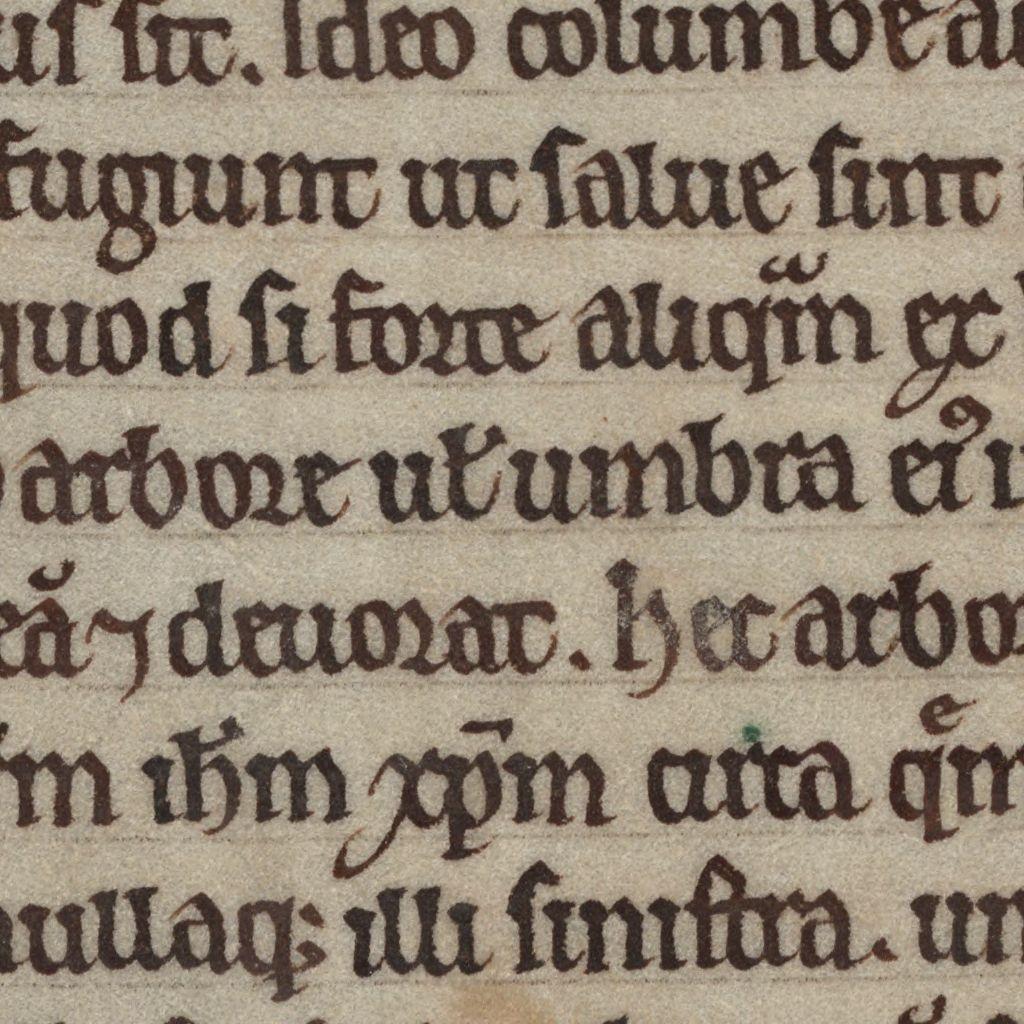 us sit. Ideo columbe a
fugiunt ut salue sint
quod si forte aliqᷓm ex
arbore ul̓ umbra ei᷒
eā ⁊ deuorat. hec arbor
m ihm̄ xp̄m circa qͤm
nullaqꝫ illi sinistra. un